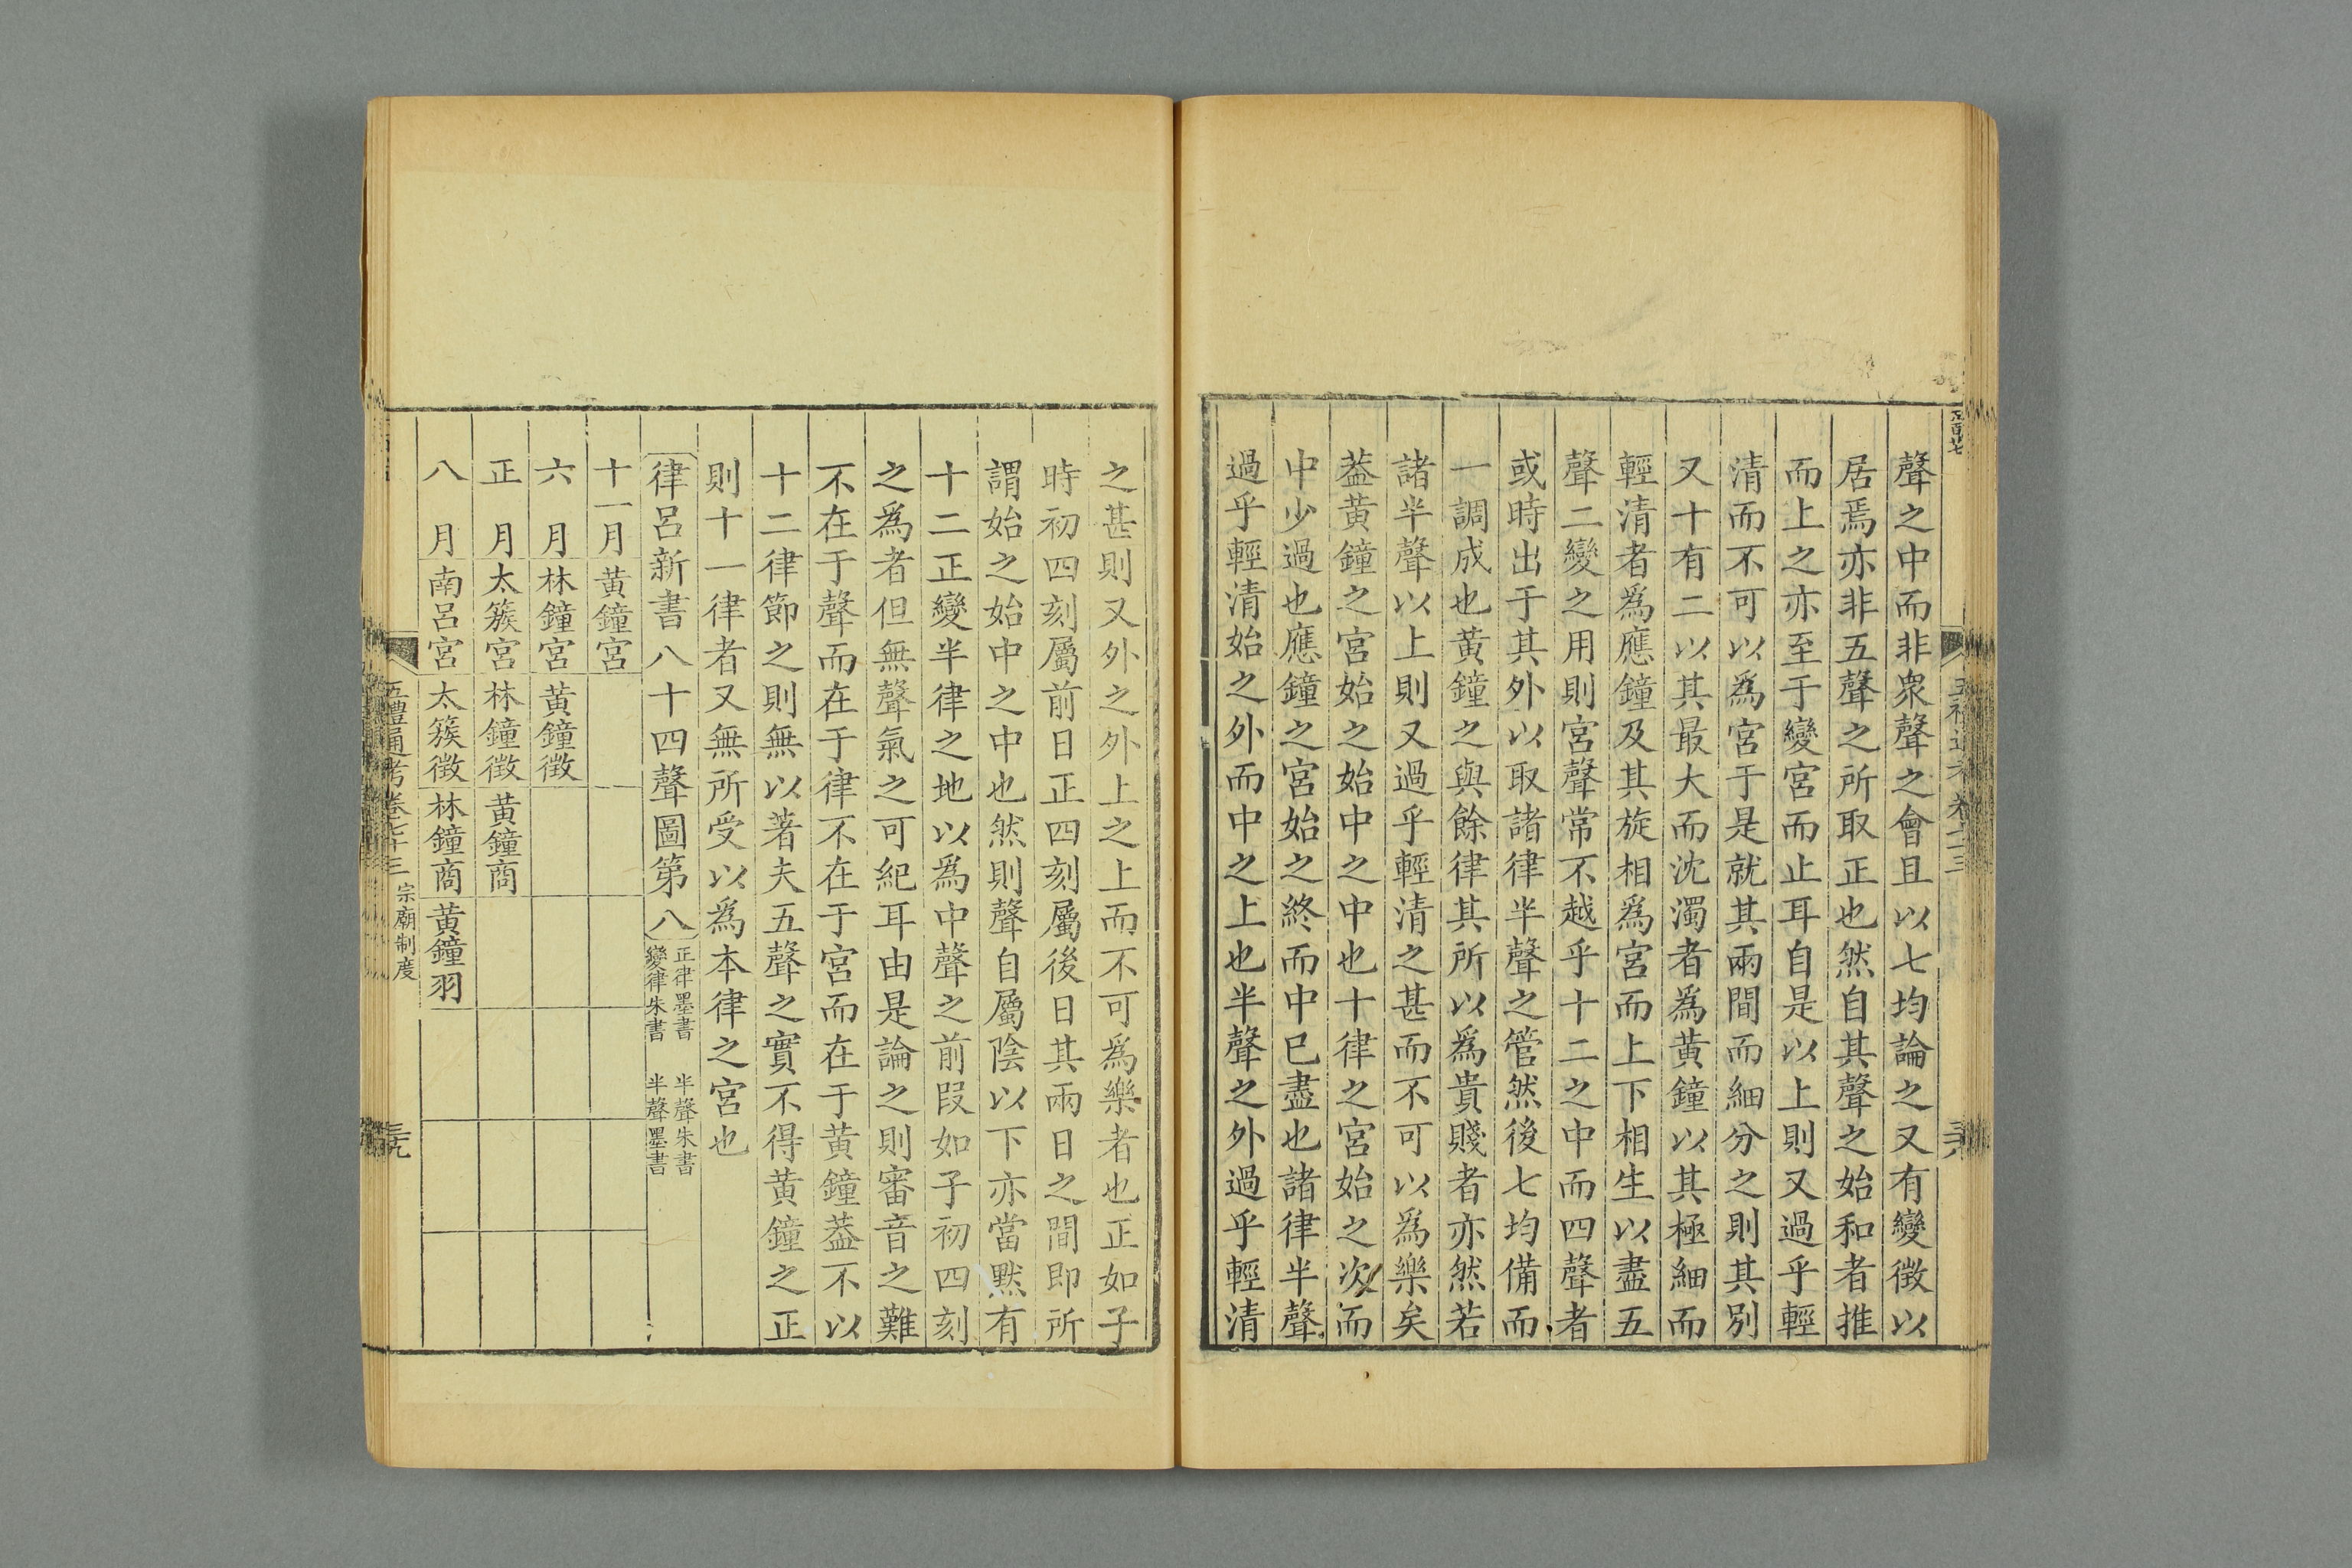 聲之中而非衆聲之會且以七均論之又有變徵以
居焉亦非五聲之所取正也然自其聲之始和者推
而上之亦至于變宮而止耳自是以上則又過乎輕
清而不可以爲宮于是就其兩間而細分之則其別
又十有二以其最大而沈濁者爲黄鐘以其極細而
輕清者爲應鐘及其旋相爲宮而上下相生以盡五
聲二變之用則宮聲常不越乎十二之中而四聲者
或時出于其外以取諸律半聲之管然後七均備而
一調成也黄鐘之與餘律其所以爲貴賤者亦然若
諸半聲以上則又過乎輕清之甚而不可以爲樂矣
葢黄鐘之宮始之始中之中也十律之宮始之次而
中少過也應鐘之宮始之終而中已盡也諸律半聲
過乎輕清始之外而中之上也半聲之外過乎輕清
之甚則又外之外上之上而不可爲樂者也正如子
時初四刻屬前日正四刻屬後日其兩日之間即所
謂始之始中之中也然則聲自屬陰以下亦當黙有
十二正變半律之地以爲中聲之前叚如子初四刻
之爲者但無聲氣之可紀耳由是論之則審音之難
不在于聲而在于律不在于宮而在于黄鐘葢不以
十二律節之則無以著夫五聲之實不得黄鐘之正
則十一律者又無所受以爲本律之宮也
律呂新書八十四聲圖第八
正律墨書 半聲朱書
變律朱書 半聲墨書
十一月 黄鐘宮
六月 林鐘宮 黄鐘徵
正月 太簇宮 林鐘徵 黄鐘商
八月 南呂宮 太簇徵 林鐘商 黄鐘羽
五禮通考卷七十三 宗廟制度
三九